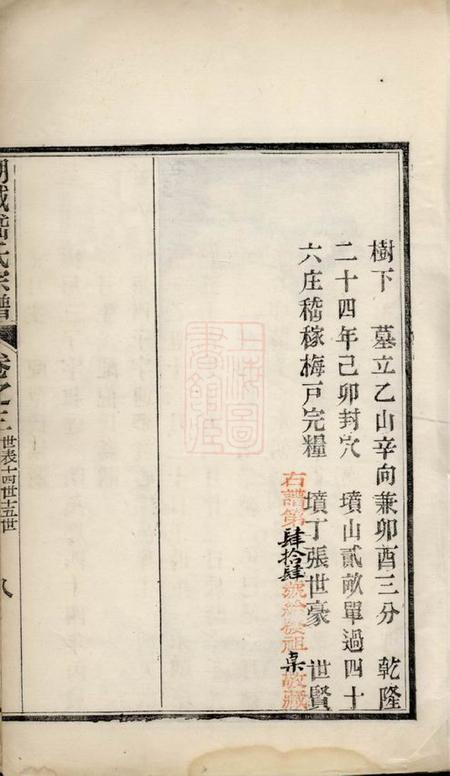 樹下　墓立乙山辛向兼卯酉三分　乾隆
二十四年己卯封穴　墳山貳畝單過四十
六庄稽稼梅戸完糧　墳丁張世豪　世賢
右譜第肆拾肆號給發祖桌收藏
上海圖書館藏
湖城嵇氏宗譜
卷之三
世表十四世十五世
八